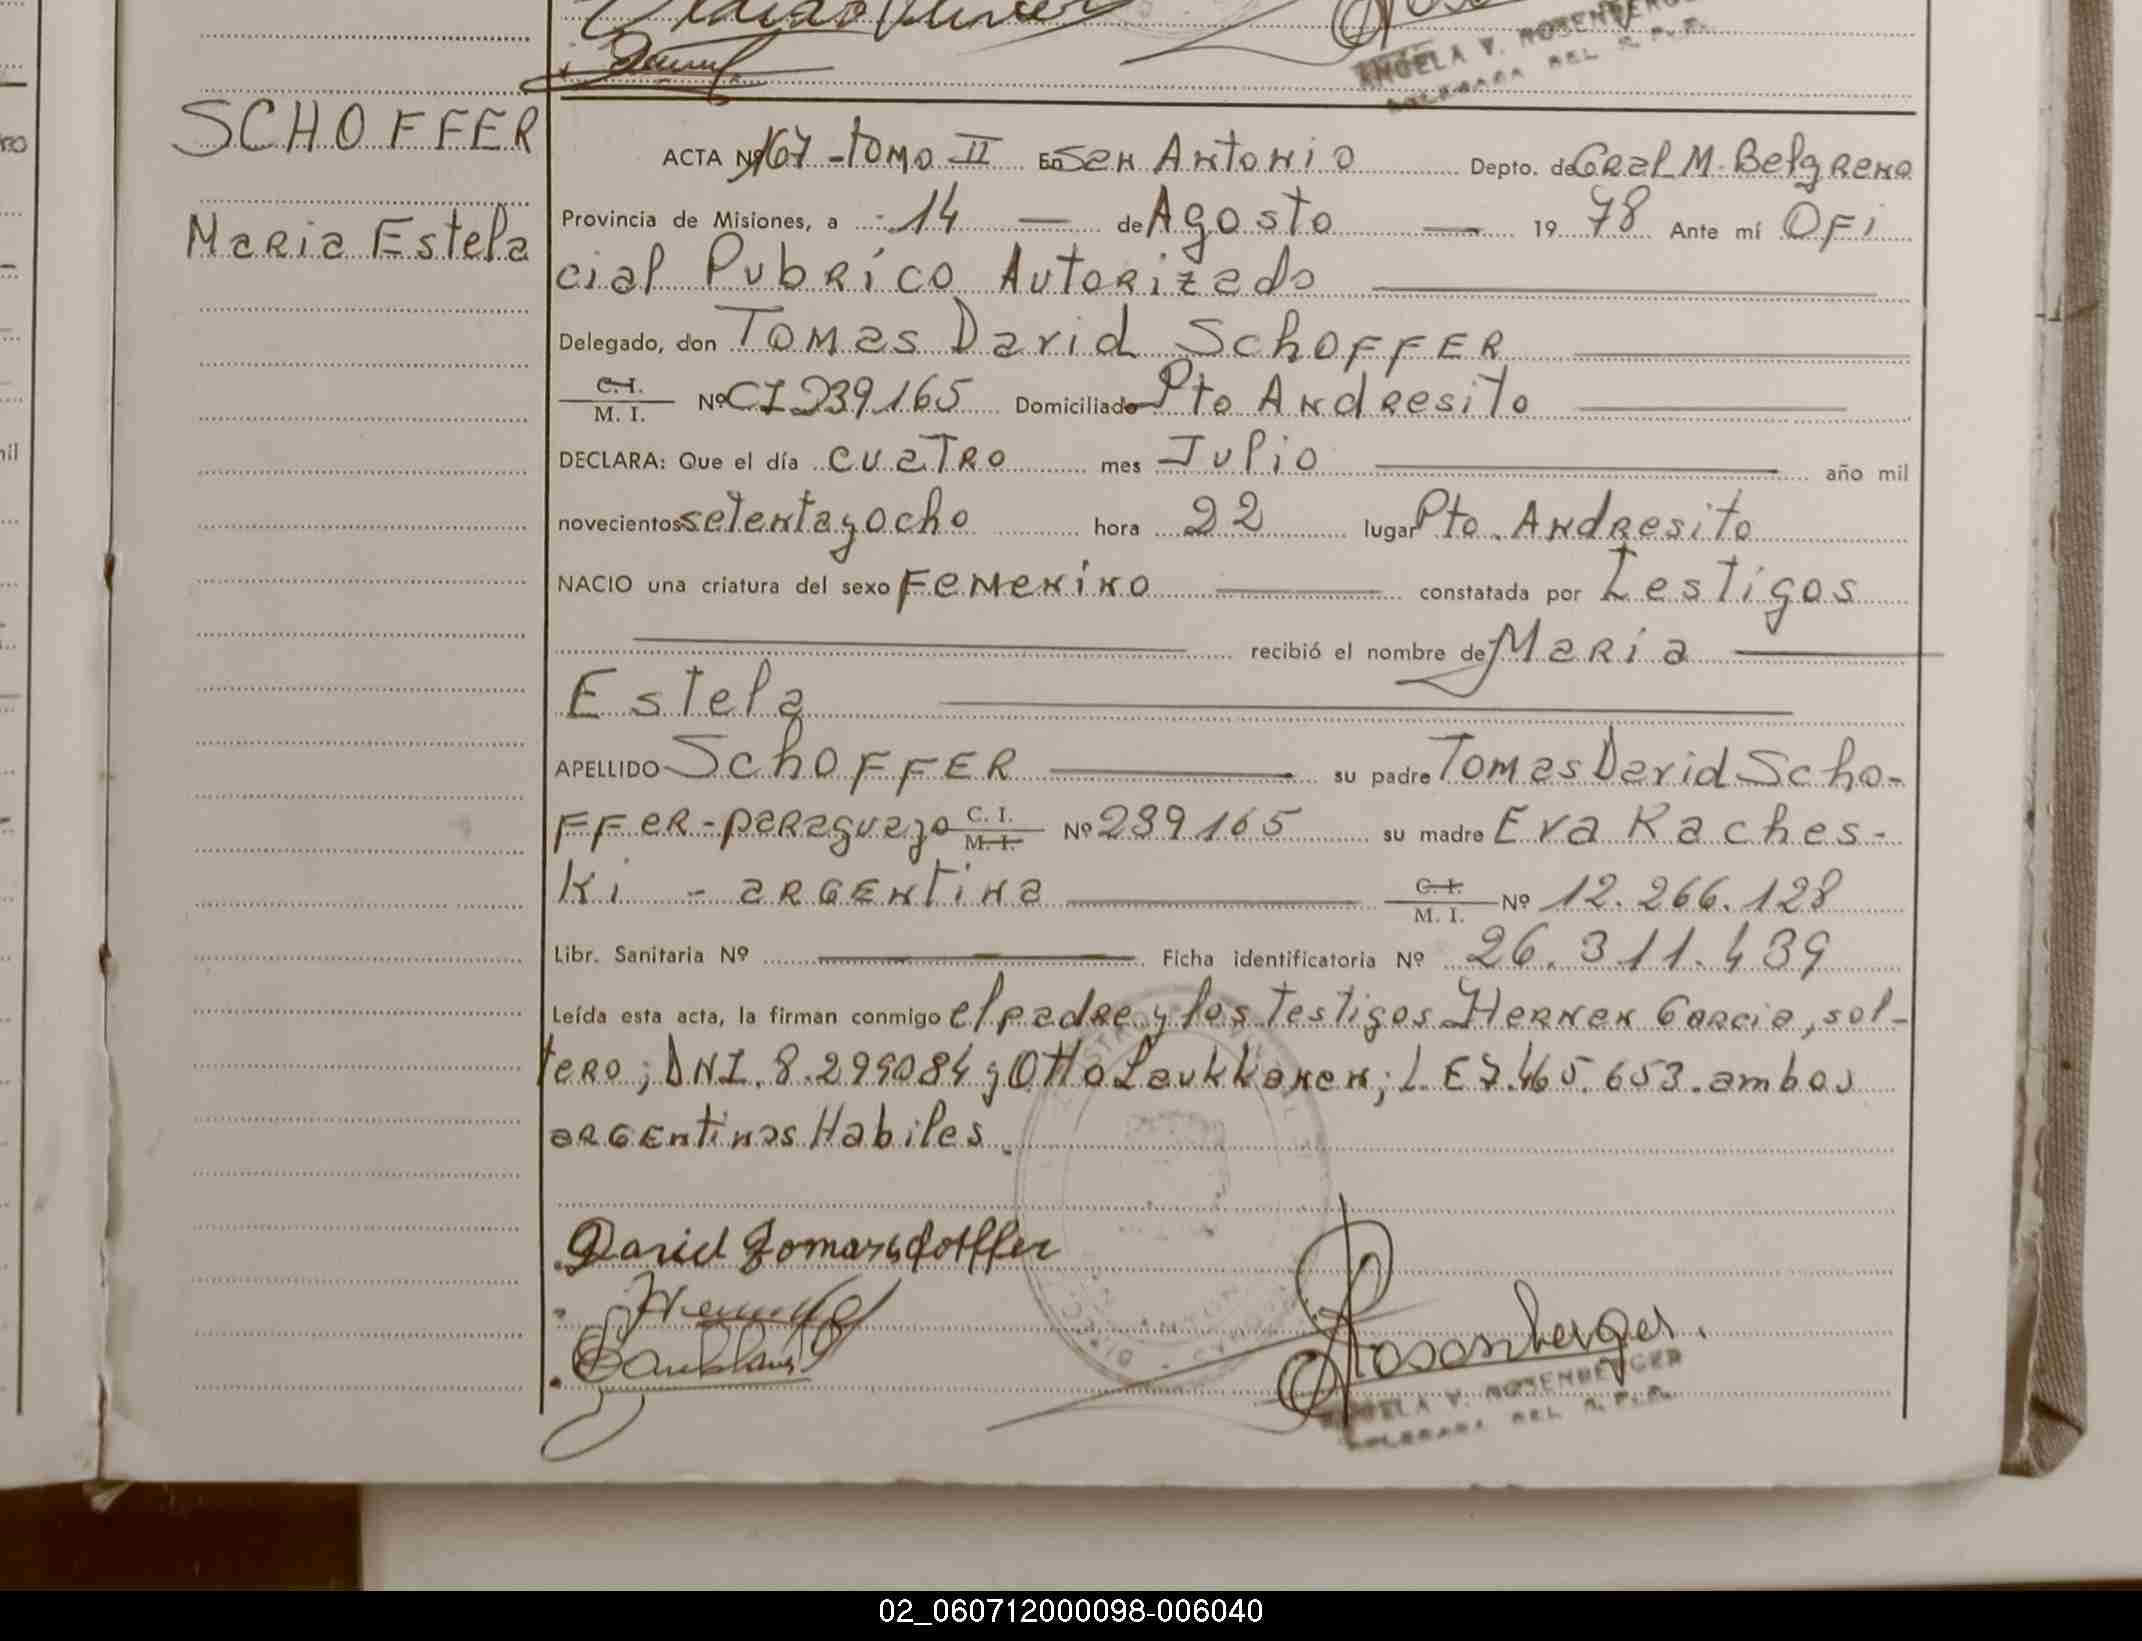 ANGELA V. ROSENBERGER
DELEGADA DEL R.P.P.
SCHOFFER
Maria Estela
ACTA Nº 167 - tomo II En San Antonio Depto. de Gral M. Belgrano
Provincia de Misiones, a 14 — de Agosto — 1978 Ante mí Ofi
cial Pubrico Autorizado
Delegado, don Tomas David Schoffer
C. I. M. I. Nº CI 239165 Domiciliado Pto Andresito
DECLARA: Que el día cuatro mes Julio año mil
novecientos setentayocho hora 22 lugar Pto. Andresito
NACIO una criatura del sexo Femenino constatada por Testigos
recibió el nombre de María
Estela
APELLIDO Schoffer su padre Tomas David Scho-
ffer - paraguayo C. I. M. I. Nº 239165 su madre Eva Kaches-
ki - argentina C. I. M. I. Nº 12.266.128
Libr. Sanitaria Nº Ficha identificatoria Nº 26.311.439
Leída esta acta, la firman conmigo el padre y los Testigos Hernan Garcia, sol-
tero; DNI. 8.299084 y Otto Laukkanen; L.E 7.465.653. ambos
argentinos Habiles
Rosenberger
ANGELA V. ROSENBERGER
DELEGADA DEL R.P.P.
02_060712000098-006040